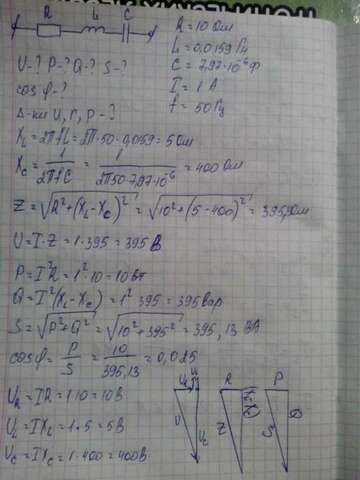 R L C
R = 10 Ом
L = 0,0159 Гн
U-? P-? Q-? S-?
C = 7,97·10⁻⁶ Ф
cos φ-?
I = 1 А
Δ-ки U, Г, P-?
f = 50 Гц
X_L = 2πfL = 2π·50·0,0159 = 5 Ом
X_C = 1/(2πfC) = 1/(2π50·7,97·10⁻⁶) = 400 Ом
Z = √(R²+(X_L-X_C)²) = √(10²+(5-400)²) = 395 Ом
U = I·Z = 1·395 = 395 В
P = I²R = 1²·10 = 10 Вт
Q = I²(X_L-X_C) = 1²·395 = 395 вар
S = √(P²+Q²) = √(10²+395²) = 395,13 ВА
cos φ = P/S = 10/395,13 = 0,025
U_R = IR = 1·10 = 10 В
U_L = IX_L = 1·5 = 5 В
U_C = IX_C = 1·400 = 400 В
U U_C
R Z
P Q S